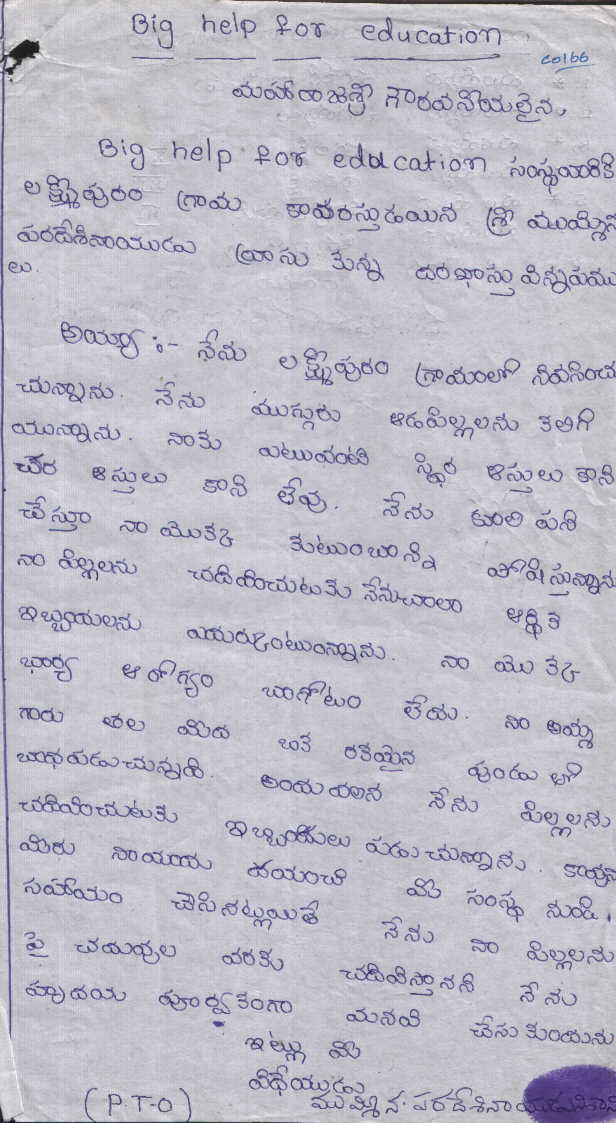 Big help for education
C0166
మహారాజశ్రీ గౌరవనీయులైన,
Big help for education సంస్థవారికి
లక్ష్మీపురం గ్రామ కాపరస్తుడయిన శ్రీ ముమ్మిన
పరదేశినాయుడు వ్రాసు కున్న దరఖాస్తు విన్నపము
లు.
అయ్యా :- నేను లక్ష్మీపురం గ్రామంలో నివసించు
చున్నాను. నేను ముగ్గురు ఆడపిల్లలను కలిగి
యున్నాను. నాకు ఎటువంటి స్థిర ఆస్తులు కాని
చర ఆస్తులు కాని లేవు. నేను కూలి పని
చేస్తూ నా యొక్క కుటుంబాన్ని పోషిస్తున్నాను
నా పిల్లలను చదివించుటకు నేనుచాలా ఆర్థిక
ఇబ్బందులను ఎదుర్కొంటున్నాను. నా యొక్క
భార్య ఆరోగ్యం బాగోటం లేదు. నా అయ్య
గారు తల మీద ఒక రకమైన పుండు తో
బాధపడుచున్నది. అందు వలన నేను పిల్లలను
చదివించుటకు ఇబ్బందులు పడుచున్నాను. కావున
మీరు నాయందు దయంచి మీ సంస్థ నుండి,
సహాయం చేసినట్లయితే నేను నా పిల్లలను
పై చదువుల వరకు చదివిస్తానని నేను
హృదయ పూర్వకంగా మనవి చేసు కుంటున్నాను
ఇట్లు మీ
విధేయుడు
(P.T-O) ముమ్మిన. పరదేశినాయుడు